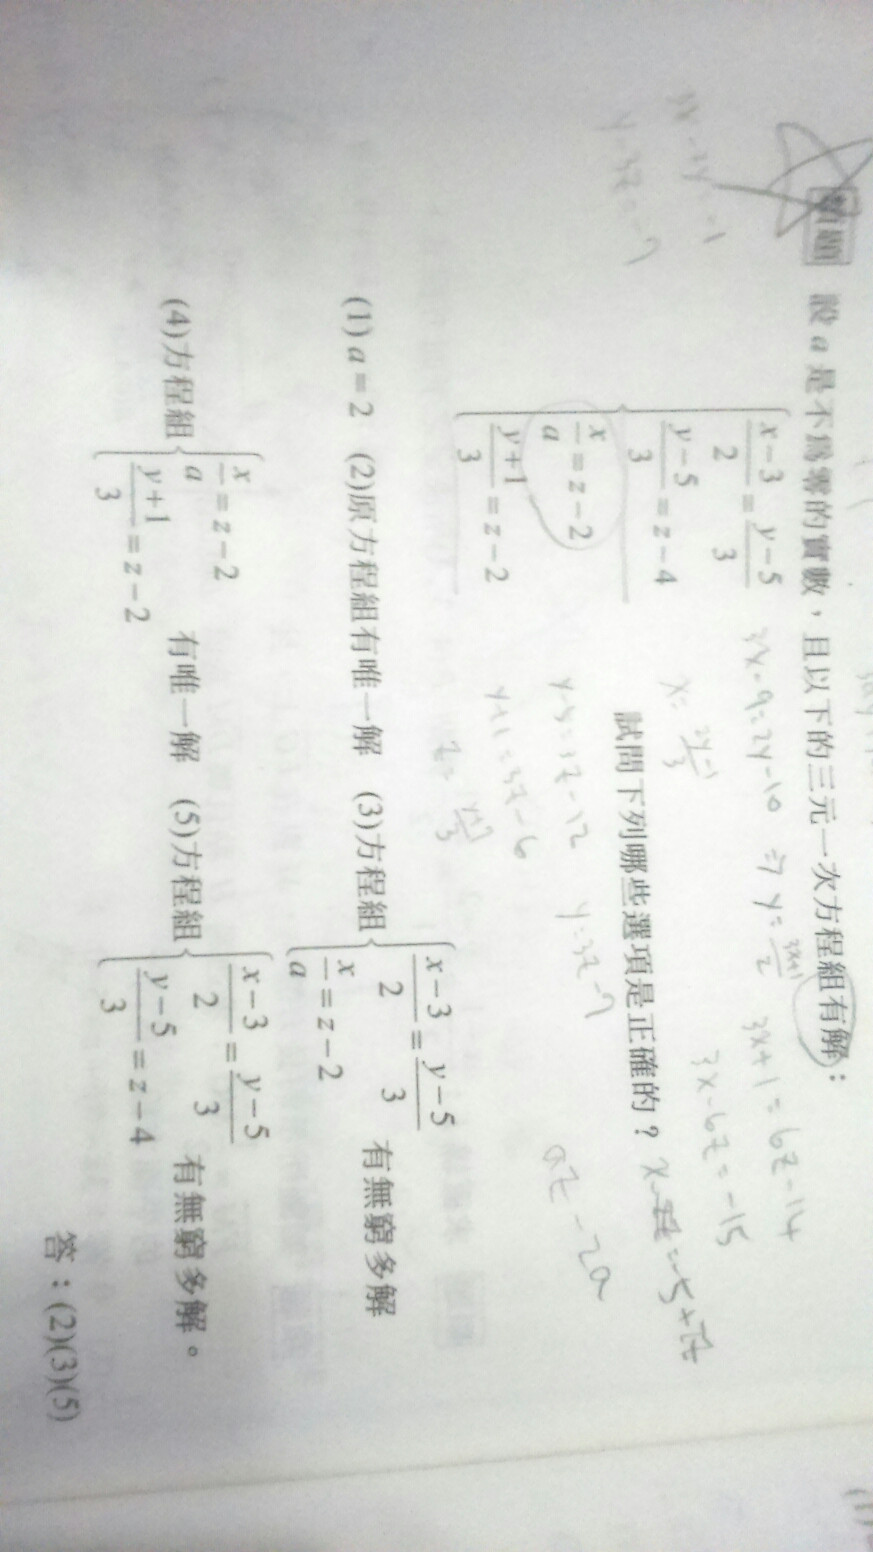 設 a 是不為零的實數，且以下的三元一次方程組有解：
x-3/2 = y-5/3
y-5/3 = z-4
x/a = z-2
y+1/3 = z-2
試問下列哪些選項是正確的？
(1) a=2 (2)原方程組有唯一解 (3)方程組 { x-3/2 = y-5/3 x/a = z-2 有無窮多解
(4)方程組 { x/a = z-2 y+1/3 = z-2 有唯一解 (5)方程組 { x-3/2 = y-5/3 y-5/3 = z-4 有無窮多解。
答：(2)(3)(5)
3x-9=2y-10 ⇒ y= 3x+1/2
3x+1=6z-14
3x-6z=-15
x= 2y-1/3
y-5=3z-12
y=3z-7
y+1=3z-6
z= y+7/3
az-2a
y-3z=-7